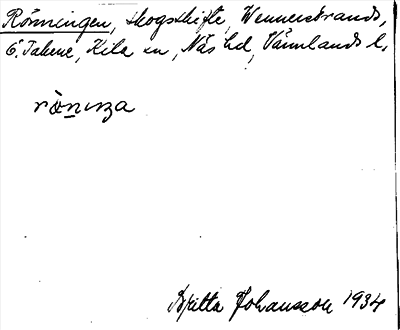 Rönningen, skogsskifte, Wennersbrands,
G. Takene, Kila sn, Näs hd, Värmlands l.
Britta Johansson 1934